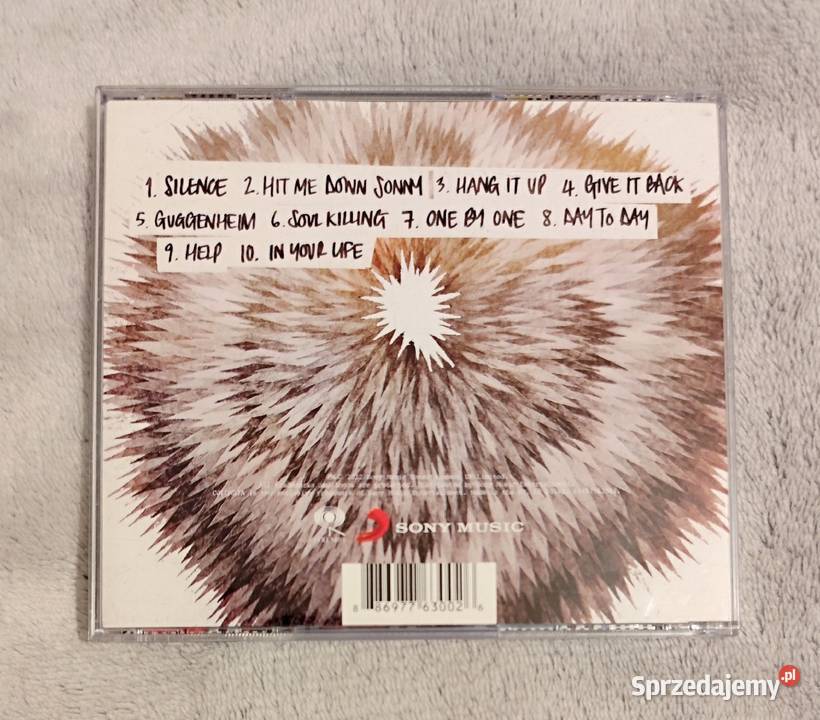 1. SILENCE 2. HIT ME DOWN SONNY 3. HANG IT UP 4. GIVE IT BACK
5. GUGGENHEIM 6. SOUL KILLING 7. ONE BY ONE 8. DAY TO DAY
9. HELP 10. IN YOUR LIFE
SONY MUSIC
8 86977 63002 6
Sprzedajemy.pl